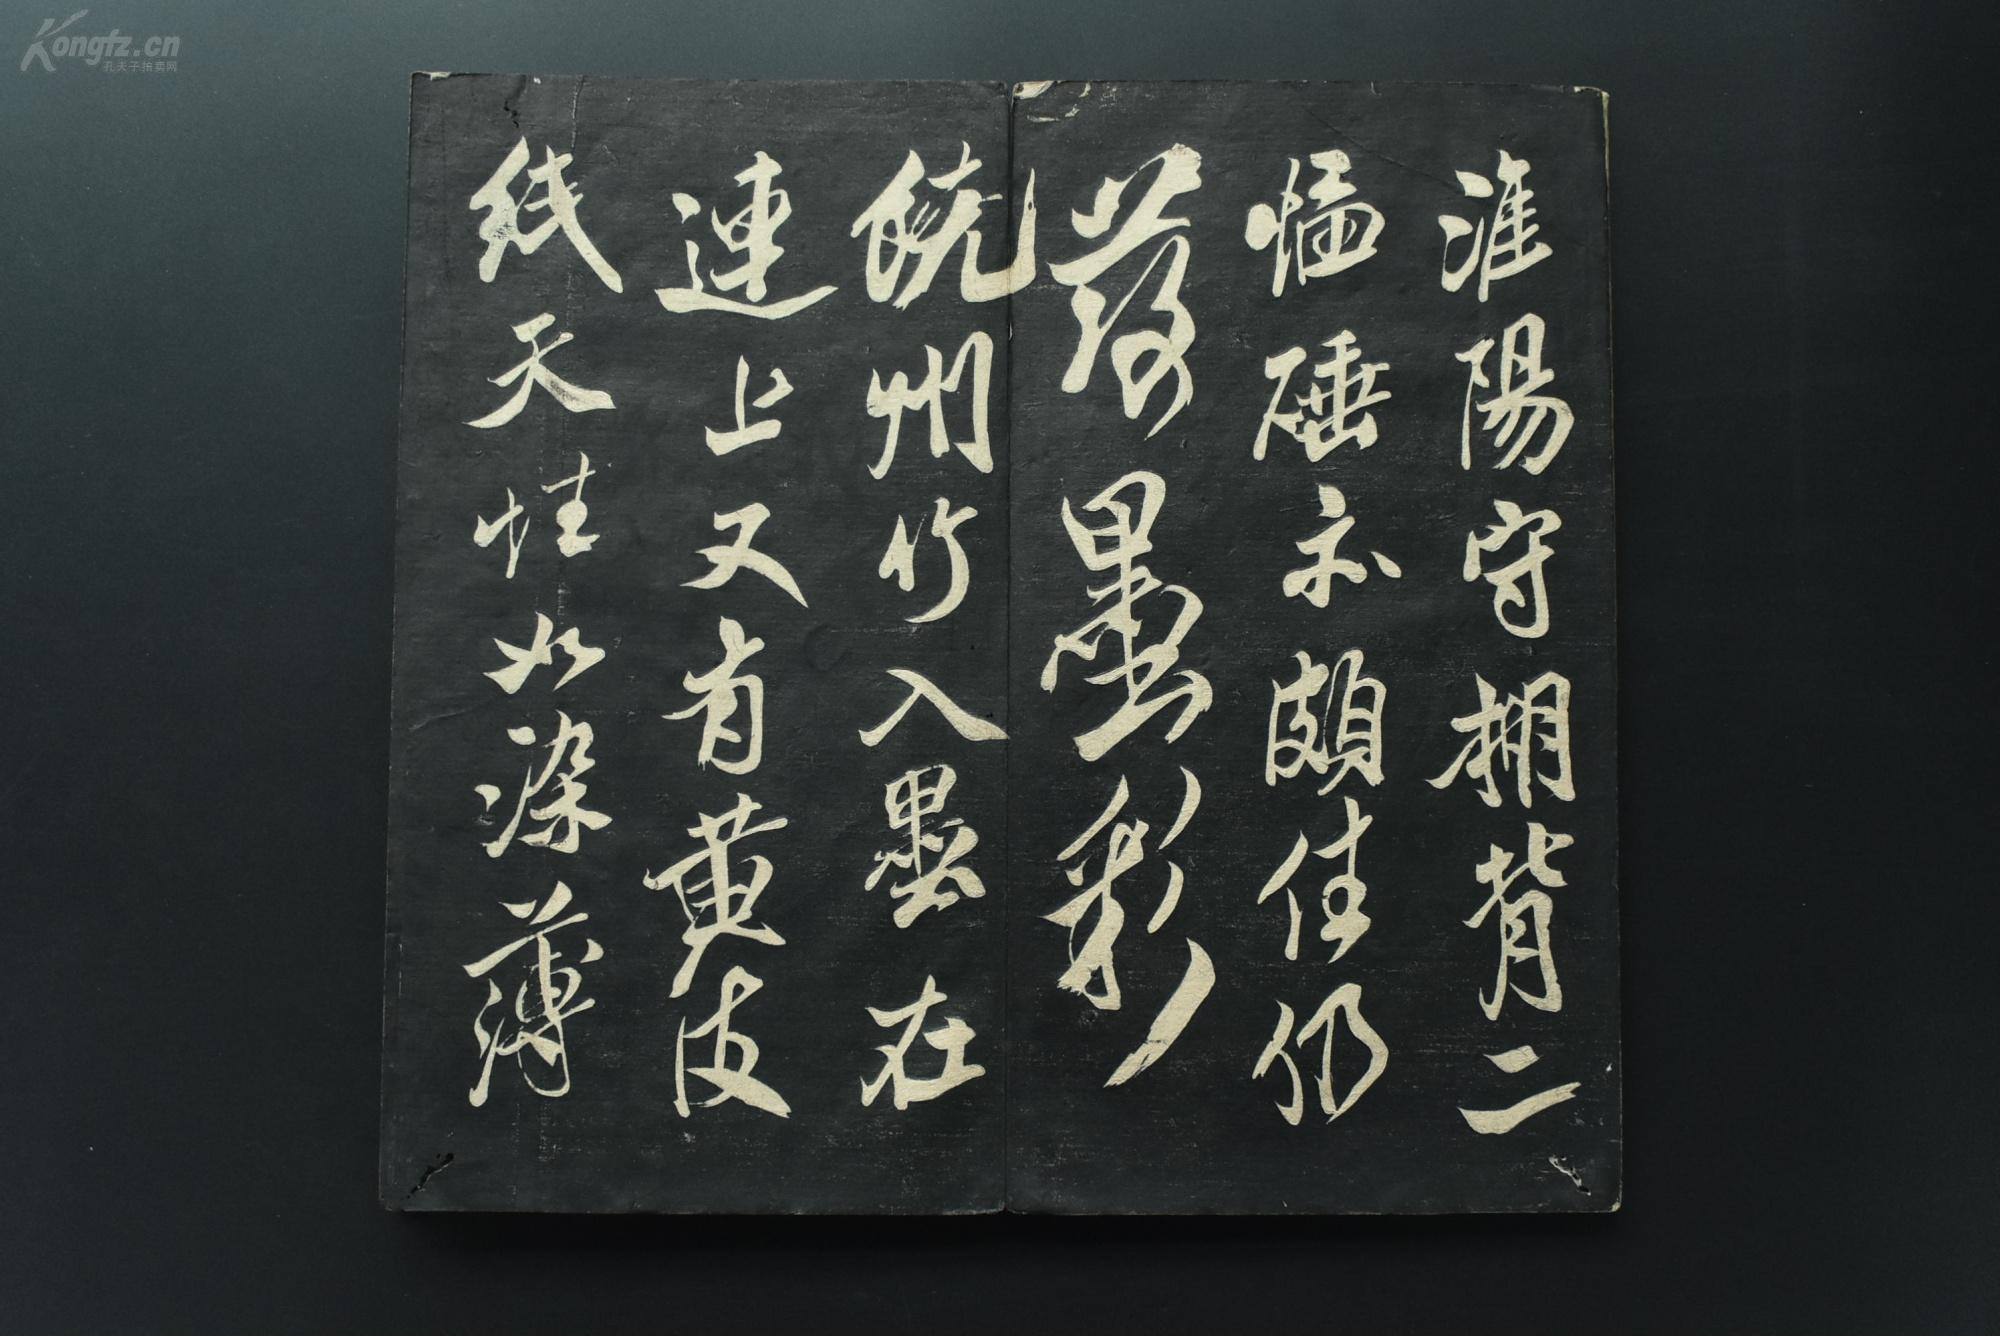 淮陽守捌背二
幅硾亦頗佳仍
發墨彩
饒州竹入墨在
連上又有黄皮
紙天性如染薄
Kongfz.cn
孔夫子拍卖网